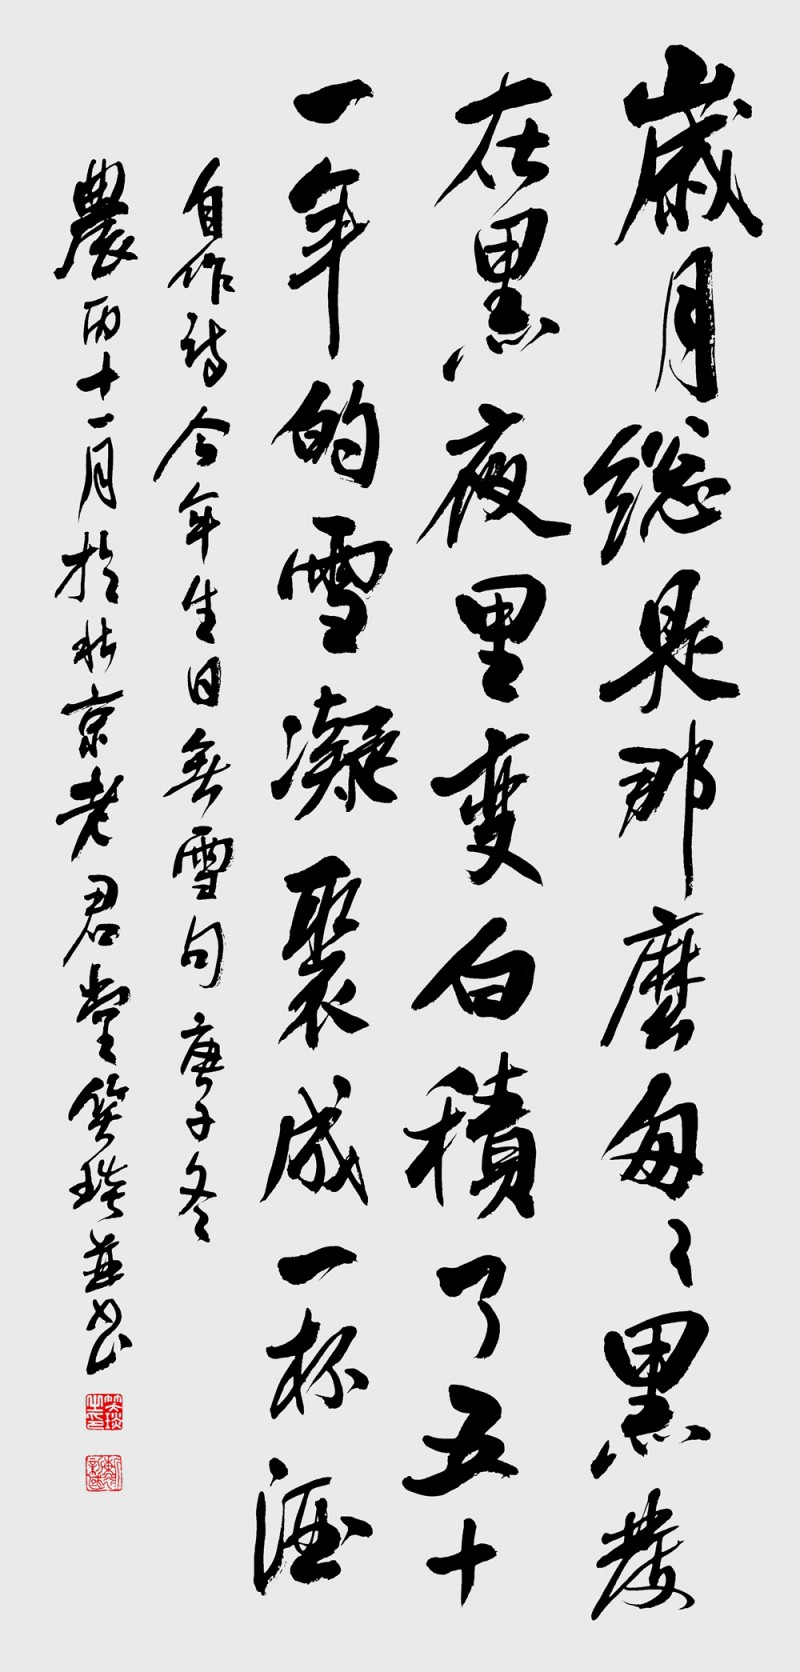 歲月總是那麼匆々黑髮
在黑夜里變白積了五十
一年的雪凝聚成一杯酒
自作詩今年生日無雪句庚子冬
農历十一月於北京老君堂笑琰並書